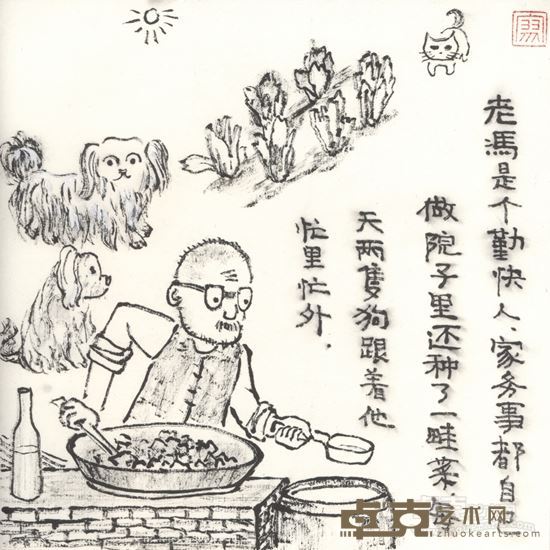 老馮是个勤快人、家务事都自己
做院子里还种了一畦菜每
天两隻狗跟着他
忙里忙外.
卓克艺术网
zhuokearts.com